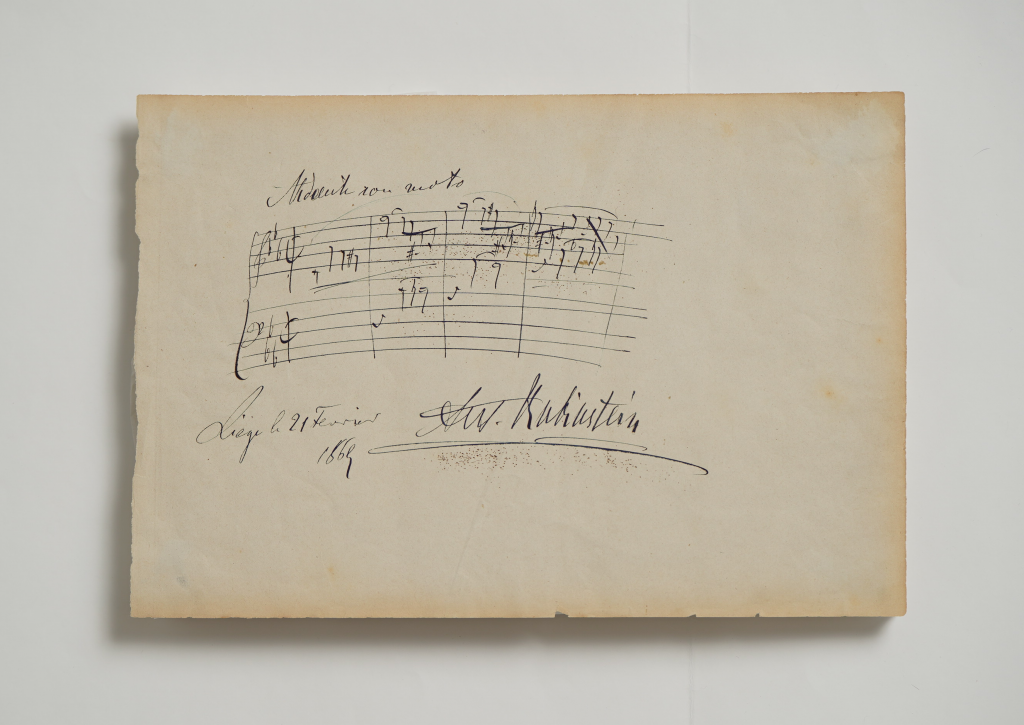 con moto
Liège le 21 Fevrier
1869
Ant. Rubinstein